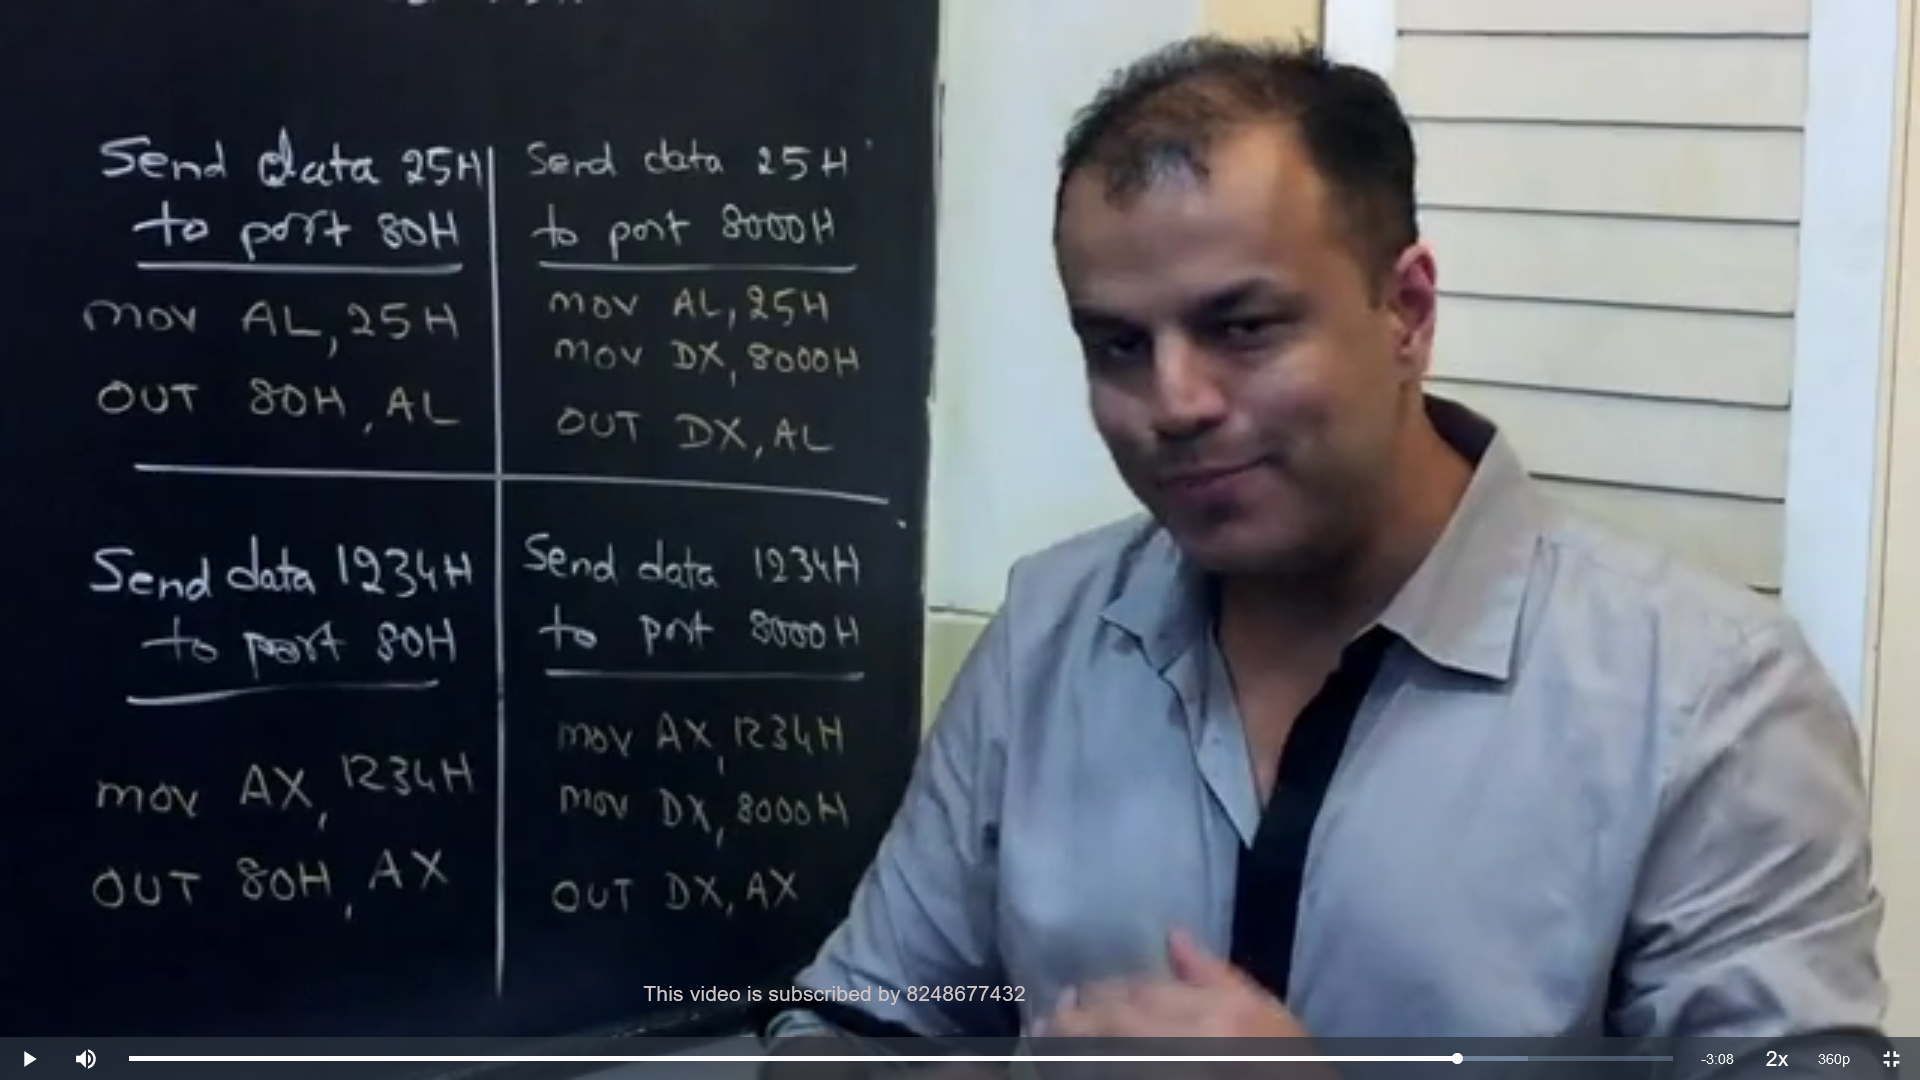 Send data 25H
to port 80H
mov AL, 25H
OUT 80H, AL
Send data 25H
to port 8000H
mov AL, 25H
mov DX, 8000H
OUT DX, AL
Send data 1234H
to port 80H
mov AX, 1234H
OUT 80H, AX
Send data 1234H
to port 8000H
mov AX, 1234H
mov DX, 8000H
OUT DX, AX
This video is subscribed by 8248677432
-3:08 2x 360p